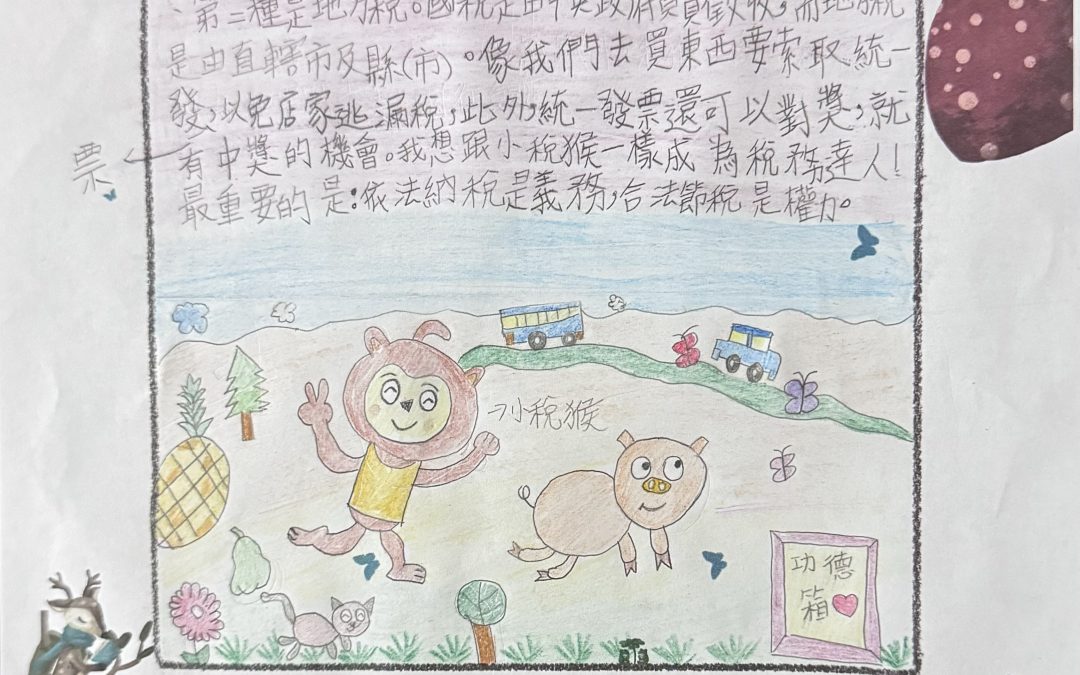 、第三種是地方稅。國稅是由中央政府負責徵收,而地方稅
是由直轄市及縣(市)。像我們去買東西要索取統一
發,以免店家逃漏稅,此外,統一發票還可以對獎,就
票
有中獎的機會。我想跟小稅猴一樣成為稅務達人!
最重要的是:依法納稅是義務,合法節稅是權力。
小稅猴
功德
箱